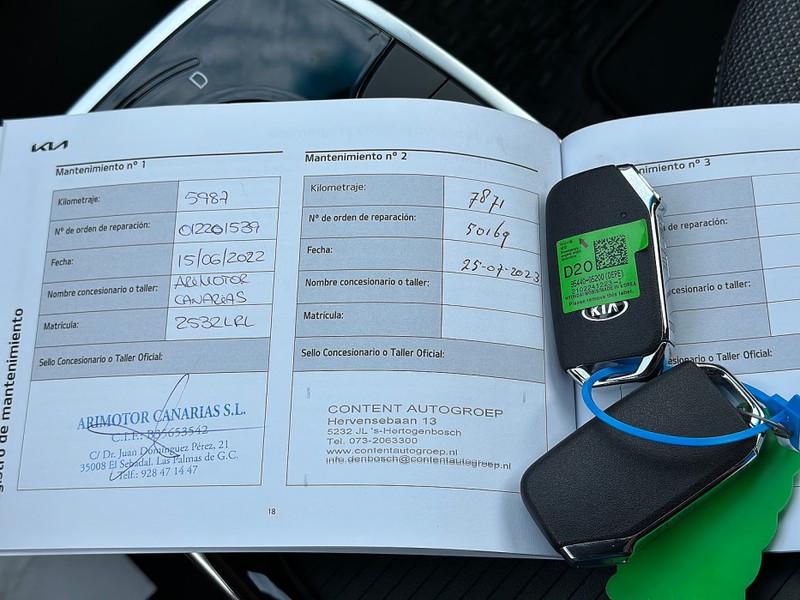 D
KIA
Mantenimiento nº 1
Kilometraje: 5987
Nº de orden de reparación: 012201539
Fecha: 15/06/2022
Nombre concesionario o taller: ARIMOTOR
CANARIAS
Matrícula: 2532LRL
Sello Concesionario o Taller Oficial:
ARIMOTOR CANARIAS S.L.
C.I.F.: B37653542
C/ Dr. Juan Domínguez Pérez, 21
35008 El Sebadal. Las Palmas de G.C.
Telf.: 928 47 14 47
18
Mantenimiento nº 2
Kilometraje: 7871
Nº de orden de reparación: 50169
Fecha: 25-07-2023
Nombre concesionario o taller:
Matrícula:
Sello Concesionario o Taller Oficial:
CONTENT AUTOGROEP
Hervensebaan 13
5232 JL 's-Hertogenbosch
Tel. 073-2063300
www.contentautogroep.nl
info.denbosch@contentautogroep.nl
nimiento nº 3
e:
en de reparación:
cesionario o taller:
esionario o Taller Oficial:
gistro de mantenimiento
D20
HYUNDAI MOBIS/MADE IN KOREA
Please remove this label.
KIA